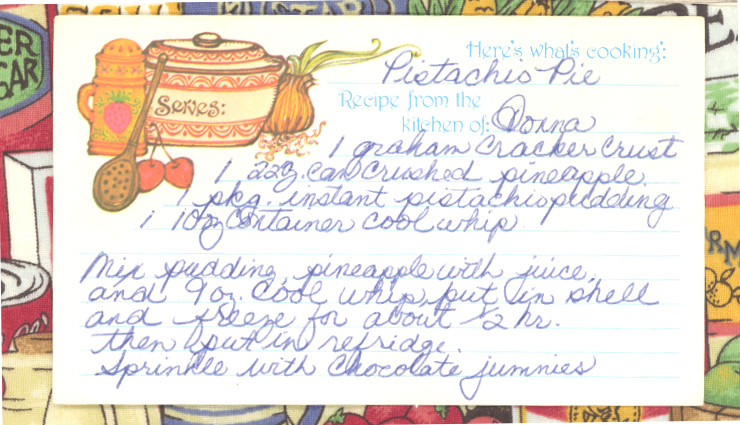 ER
GAR
Here's what's cooking:
Pistachio Pie
Serves:
Recipe from the
kitchen of: Donna
1 graham cracker crust
1 22oz. can crushed pineapple.
1 pkg. instant pistachio pudding
1 10oz container cool whip
Mix pudding, pineapple with juice,
and 9 oz. cool whip, put in shell
and freeze for about 1/2 hr.
then put in refridge.
Sprinkle with chocolate jummies
RM